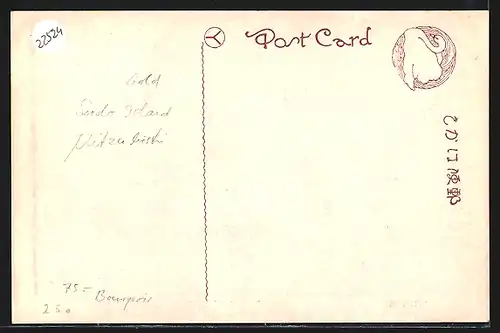 22524
Post Card
Gold
Sado Island
Mitzubishi
郵便はかき
75-
Bourgois
250